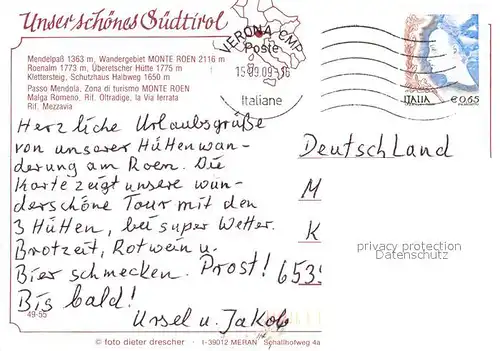 Unser schönes Südtirol
Mendelpaß 1363 m, Wandergebiet MONTE ROEN 2116 m
Roenalm 1773 m, Überetscher Hütte 1775 m
Klettersteig, Schutzhaus Halbweg 1650 m
Passo Mendola, Zona di turismo MONTE ROEN
Malga Romeno, Rif. Oltradige, la Via ferrata
Rif. Mezzavia
VERONA CMP
Poste
Italiane
ITALIA € 0,65
Herzliche Urlaubsgrüße
von unserer Hüttenwan-
derung am Roen. Die
Karte zeigt unsere wun-
derschöne Tour mit den
3 Hütten, bei super Wetter.
Brotzeit, Rotwein u.
Bier schmecken. Prost!
Bis bald!
Ursel u. Jakob
Deutschland
M
K
653
privacy protection
Datenschutz
49-55
© foto dieter drescher I-39012 MERAN Schallhofweg 4a